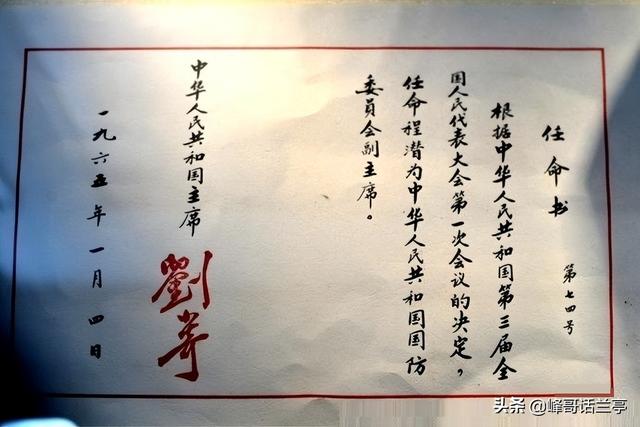 任命书
第七四号
根据中华人民共和国第三届全
国人民代表大会第一次会议的决定，
任命程潜为中华人民共和国国防
委员会副主席。
中华人民共和国主席
劉少奇
一九六五年一月四日
头条 @峰哥话兰亭